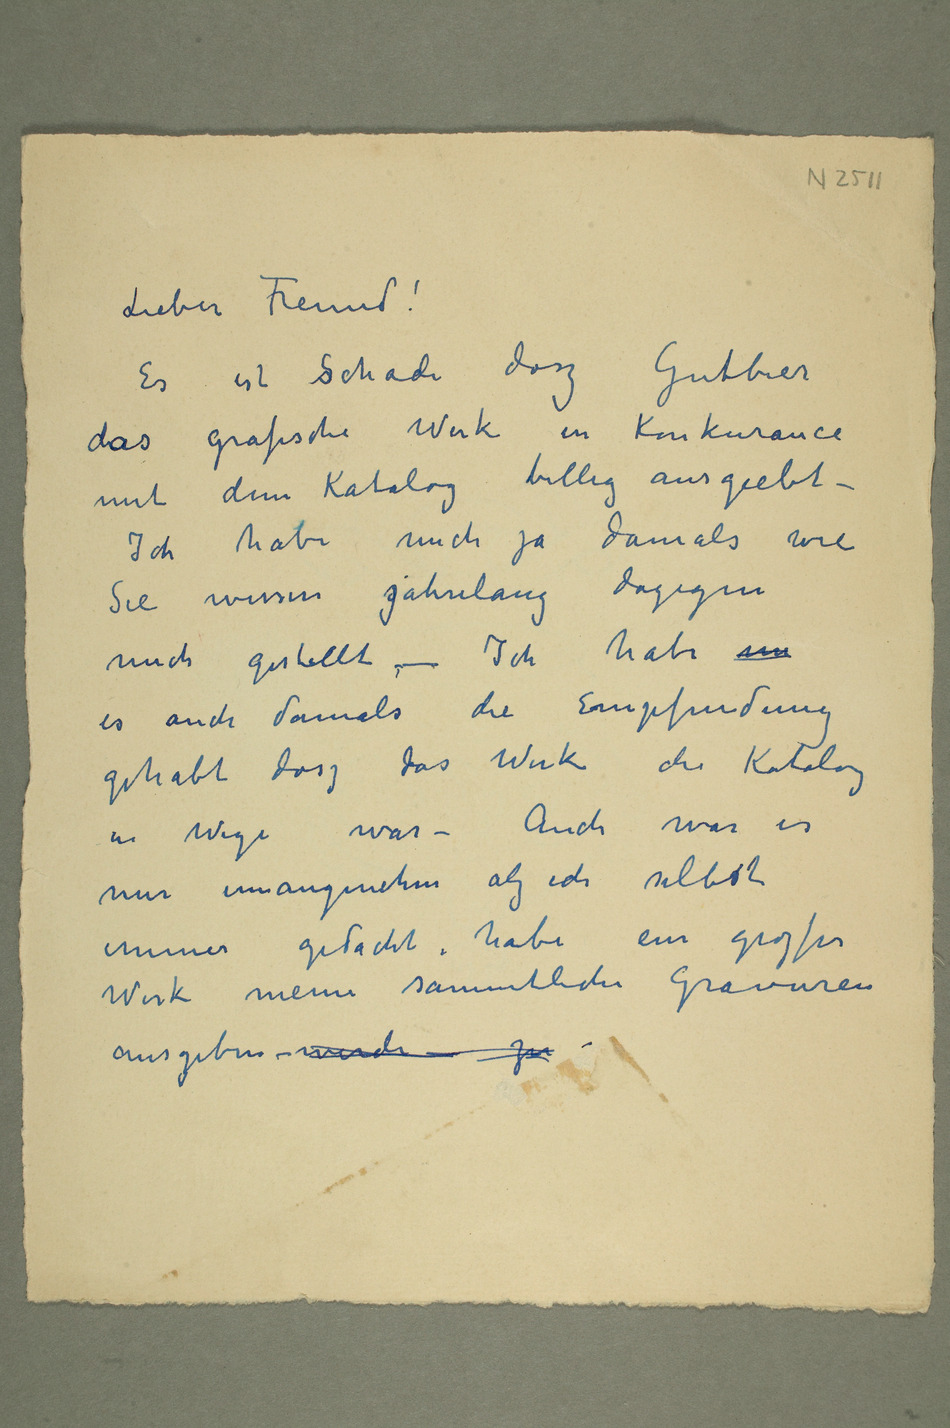 N 2511
Lieber Freund!
Es ist Schade dasz Gutbier
das grafische Werk in Konkurance
mit dem Katalog billig ausgiebt –
Ich habe mich ja damals wie
Sie wissen jahrelang dagegen
mich gestellt, – Ich habe
es auch damals die Empfindung
gehabt dasz das Werk die Katalog
in Wege war – Auch war es
mir unangenehm alz ich selbst
immer gedacht, habe ein grozses
Werk meine sammtliche Gravuren
ausgeben – werde – zu –